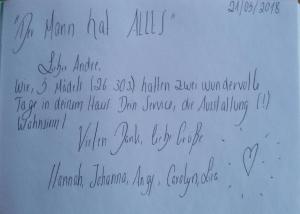 21/05/2018
"Der Mann hat ALLES"
Lieber Andre,
Wir, 5 Mädels (26-30J) hatten zwei wundervolle
Tage in deinem Haus. Dein Service, die Ausstattung (!)
Wahnsinn!
Vielen Dank, liebe Grüße
Hannah, Johanna, Angy, Carolyn, Lisa